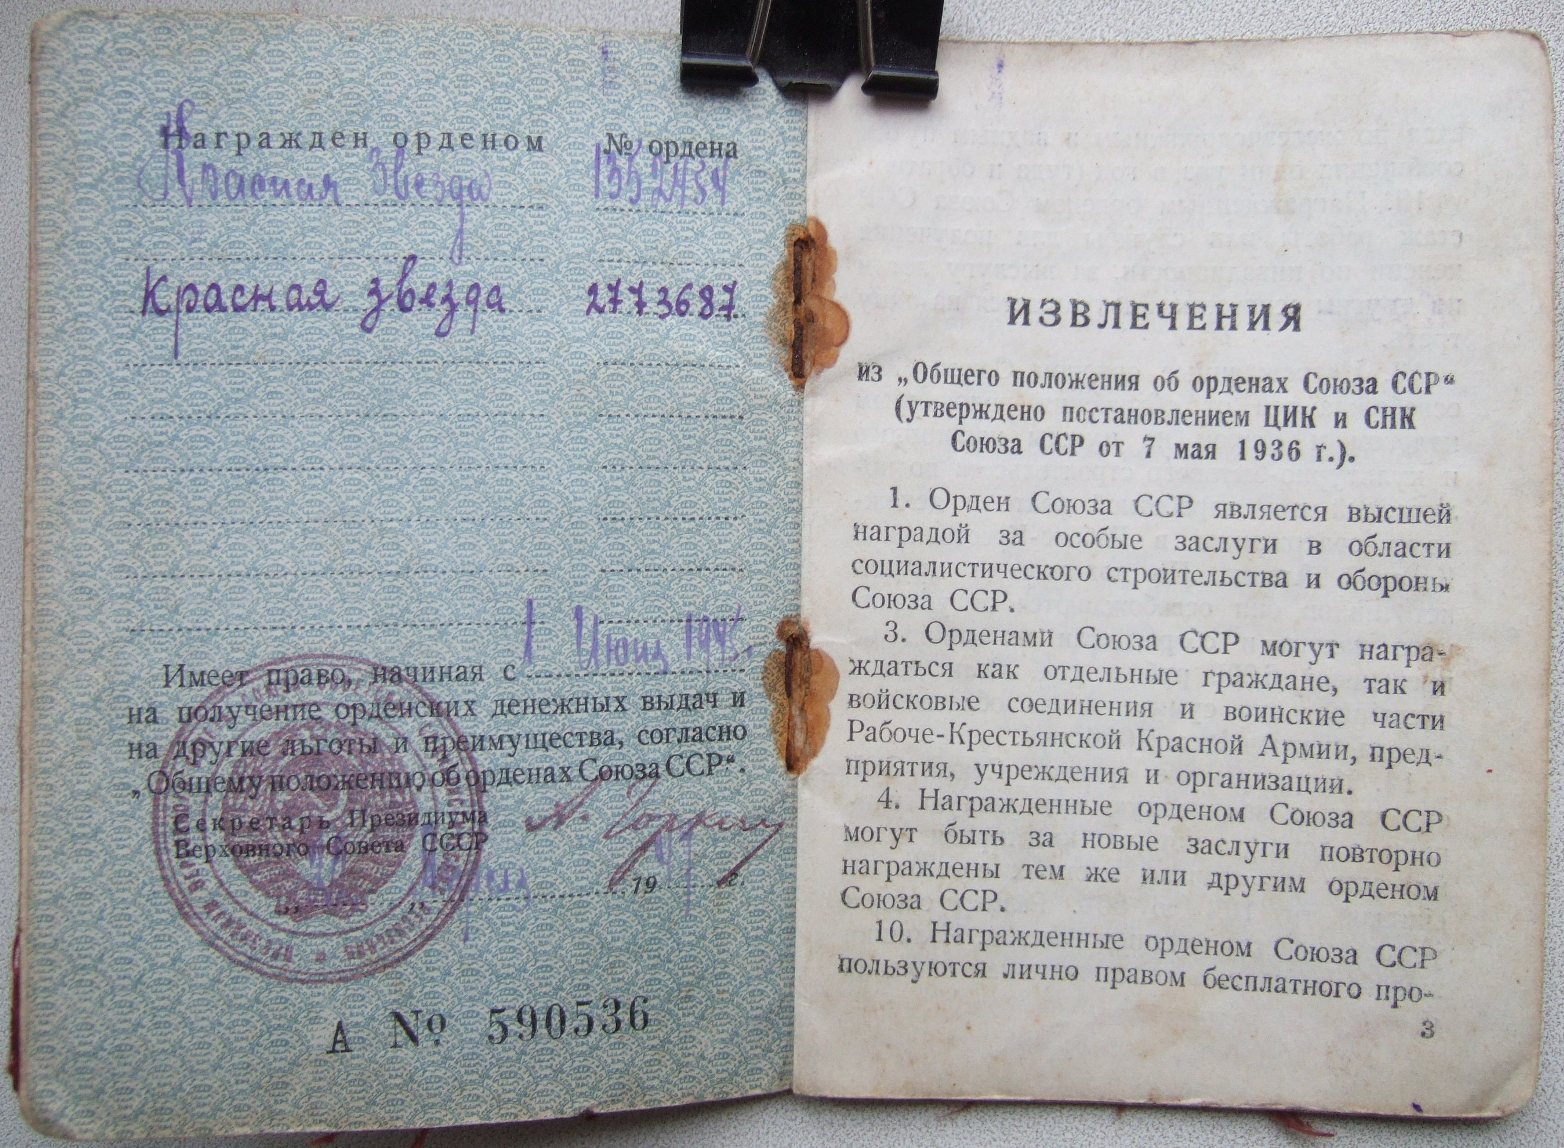 Награжден орденом № ордена
Красная Звезда
Красная звезда 2773687
Имеет право, начиная с 1 Июня 1945.
на получение орденских денежных выдач и
на другие льготы и преимущества, согласно
„Общему положению об орденах Союза ССР“.
Секретарь Президиума
Верховного Совета СССР
19 г.
А № 590536
ИЗВЛЕЧЕНИЯ
из „Общего положения об орденах Союза ССР“
(утверждено постановлением ЦИК и СНК
Союза ССР от 7 мая 1936 г.).
1. Орден Союза ССР является высшей
наградой за особые заслуги в области
социалистического строительства и обороны
Союза ССР.
3. Орденами Союза ССР могут награ-
ждаться как отдельные граждане, так и
войсковые соединения и воинские части
Рабоче-Крестьянской Красной Армии, пред-
приятия, учреждения и организации.
4. Награжденные орденом Союза ССР
могут быть за новые заслуги повторно
награждены тем же или другим орденом
Союза ССР.
10. Награжденные орденом Союза ССР
пользуются лично правом бесплатного про-
3